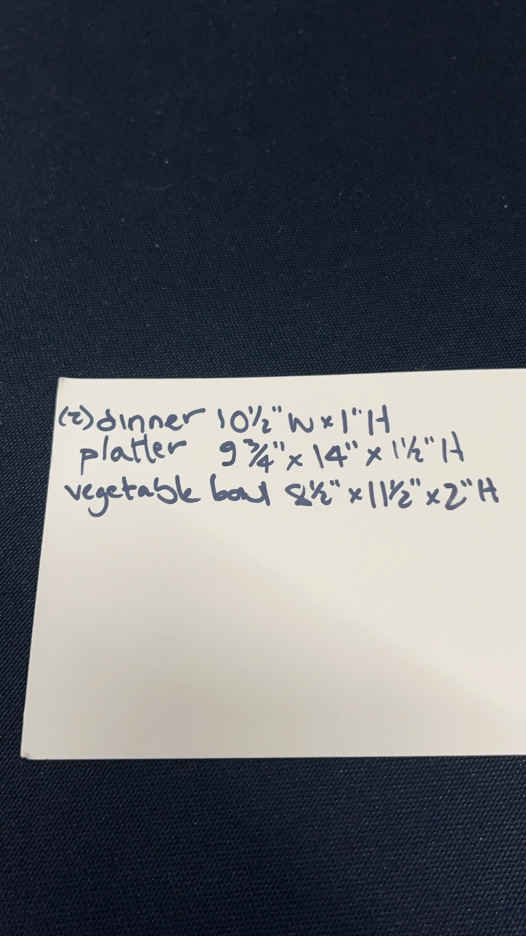 (2) dinner 10½" W x 1" H
platter 9 ¾" x 14" x 1½" H
vegetable bowl 8½" x 11½" x 2" H